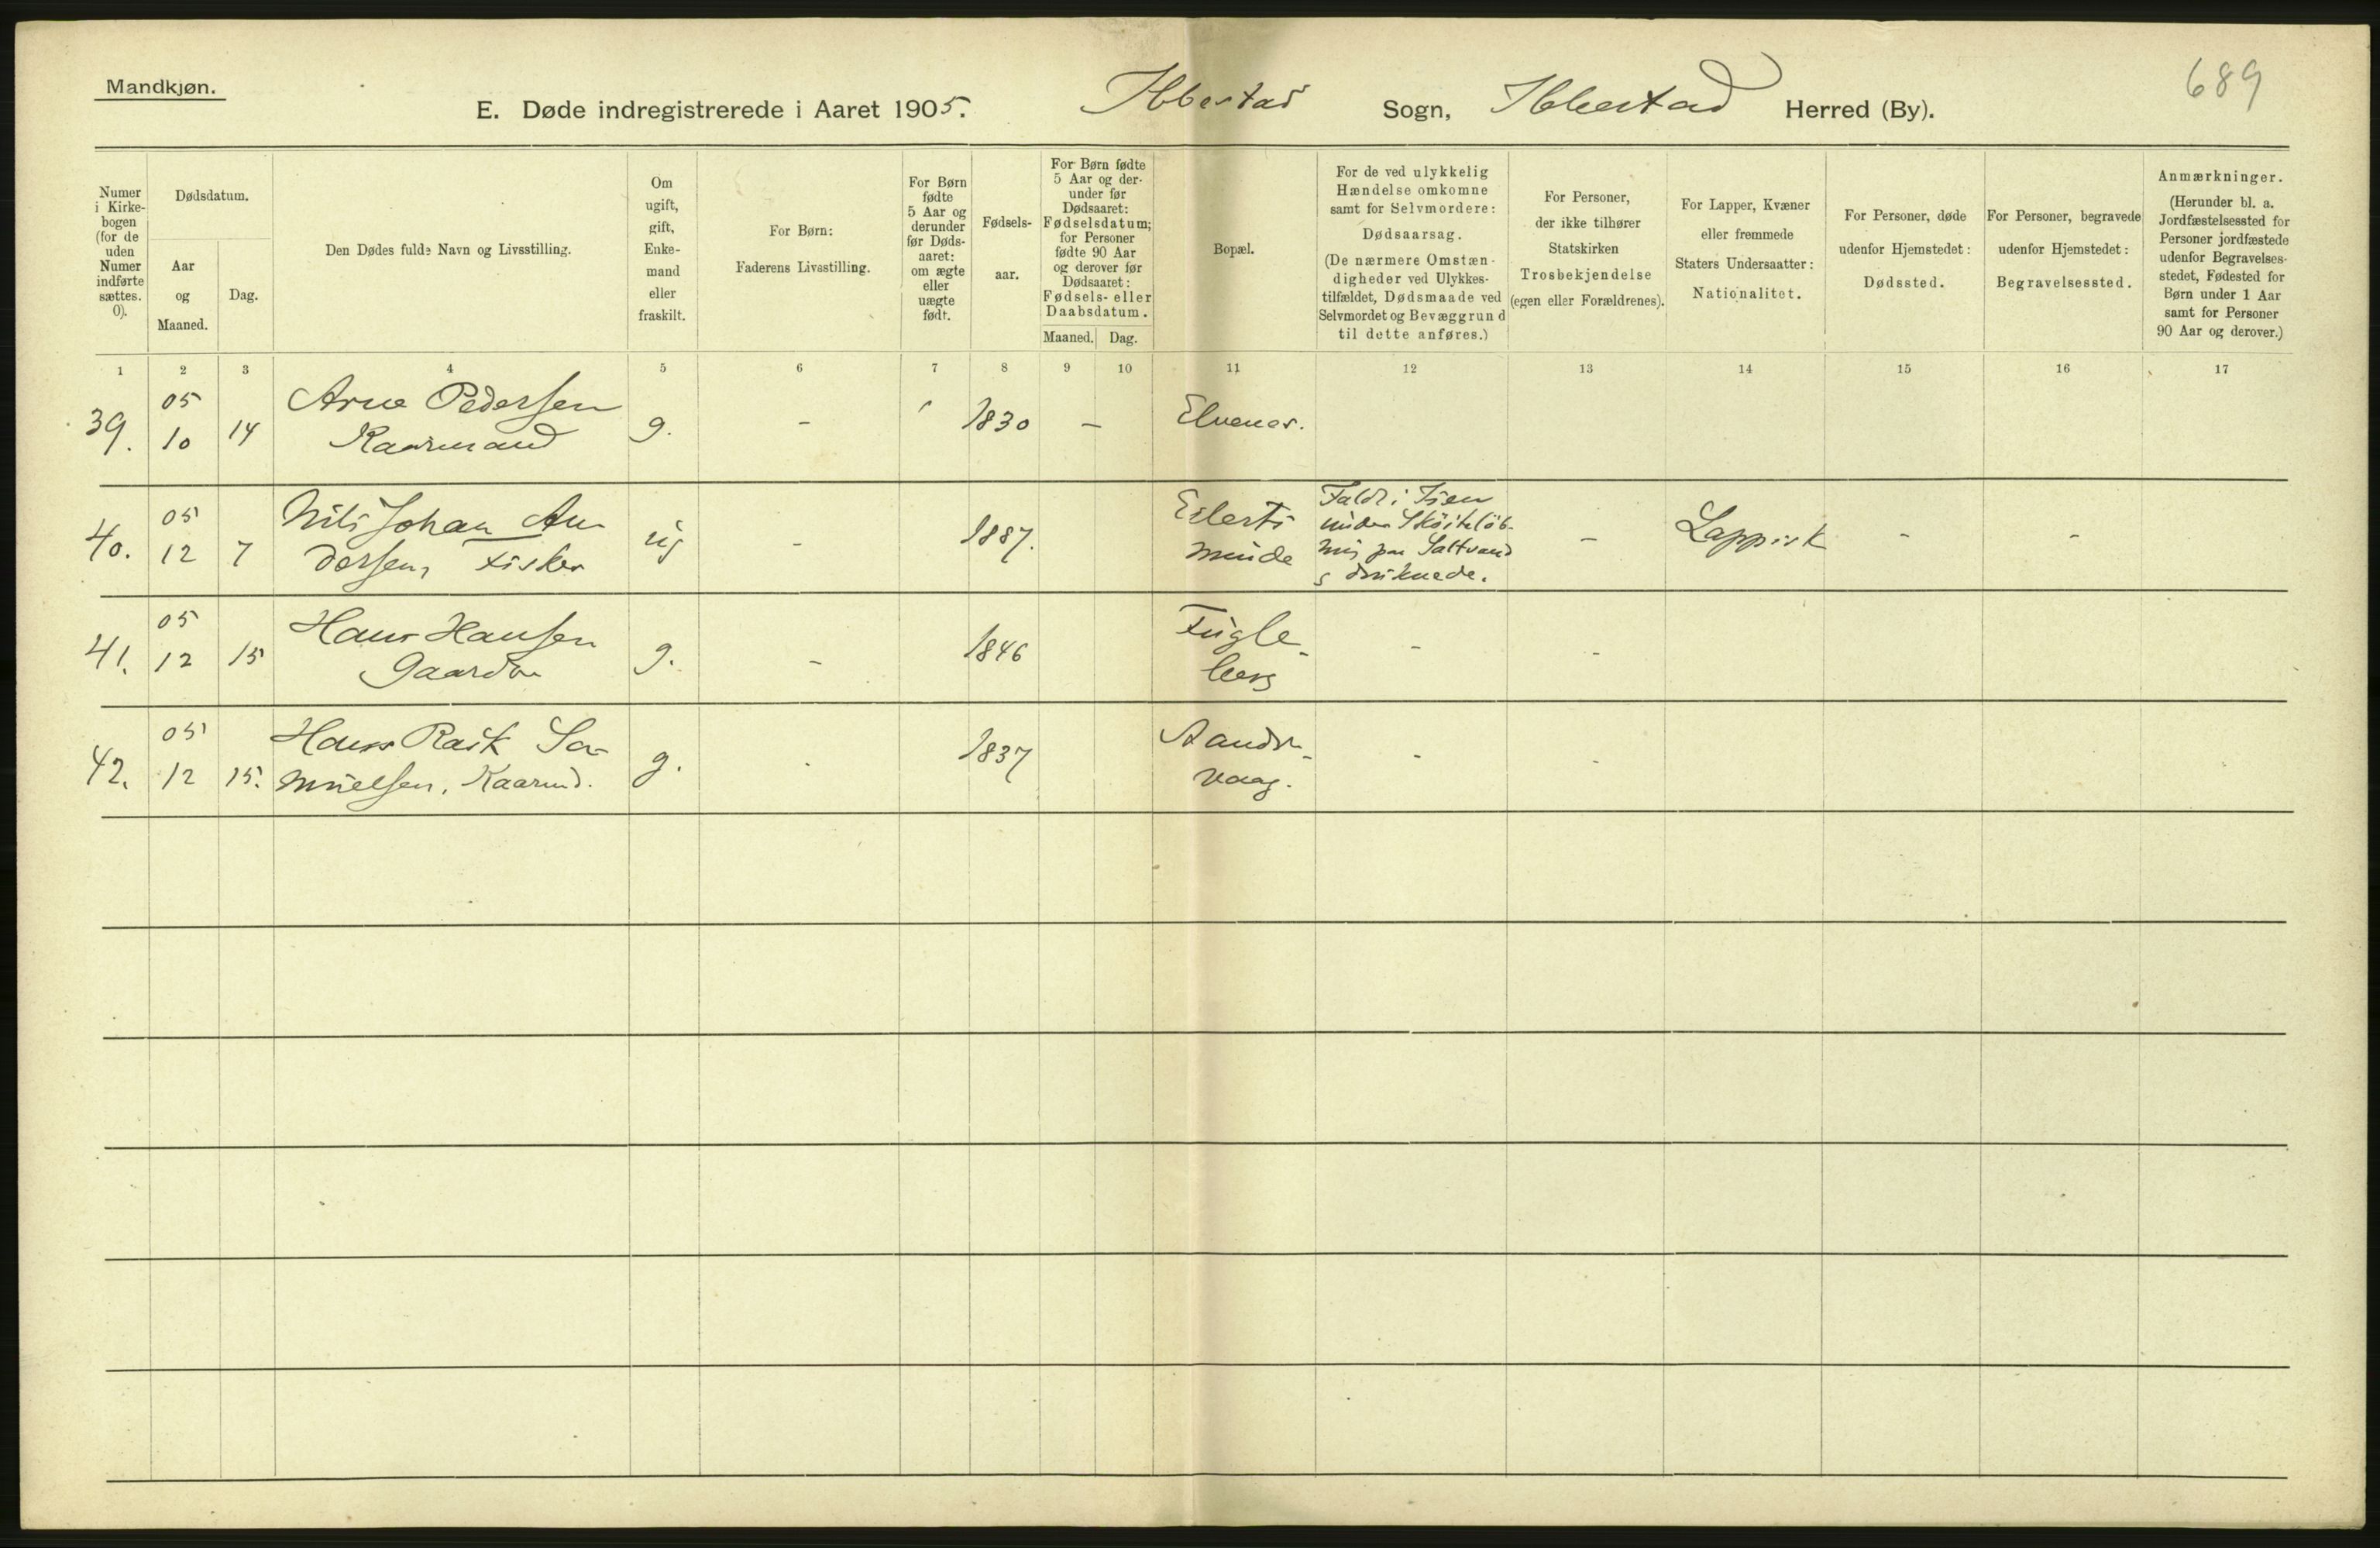 Mandkjøn.
689
E. Døde indregistrerede i Aaret 1905. Ibbestad Sogn, Ibbestad Herred (By).
Numer i Kirkebogen (for de uden Numer indførte sættes. 0).
Dødsdatum.
Aar og Maaned.
Dag.
Den Dødes fulde Navn og Livsstilling.
Om ugift, gift, Enkemand eller fraskilt.
For Børn: Faderens Livsstilling.
For Børn fødte 5 Aar og derunder før Dødsaaret: om ægte eller uægte født.
Fødselsaar.
For Børn fødte 5 Aar og derunder før Dødsaaret: Fødselsdatum; for Personer fødte 90 Aar og derover før Dødsaaret: Fødsels- eller Daabsdatum.
Maaned. Dag.
Bopæl.
For de ved ulykkelig Hændelse omkomne samt for Selvmordere: Dødsaarsag.
(De nærmere Omstændigheder ved Ulykkestilfældet, Dødsmaade ved Selvmordet og Bevæggrund til dette anføres.)
For Personer, der ikke tilhører Statskirken Trosbekjendelse (egen eller Forældrenes).
For Lapper, Kvæner eller fremmede Staters Undersaatter: Nationalitet.
For Personer, døde udenfor Hjemstedet: Dødssted.
For Personer, begravede udenfor Hjemstedet: Begravelsessted.
Anmærkninger.
(Herunder bl. a. Jordfæstelsessted for Personer jordfæstede udenfor Begravelsesstedet, Fødested for Børn under 1 Aar samt for Personer 90 Aar og derover.)
1 2 3 4 5 6 7 8 9 10 11 12 13 14 15 16 17
39. 05 10 14 Arne Pedersen
Kaarmand g. - 1830 - Elvenes.
40. 05 12 7 Nils Johan An-
dersen, Fisker ug - 1887. Eilerts
minde
Faldt i Isen
under Sköiteløb-
ning paa Saltvand
& druknede.
- Lappisk - -
41. 05 12 15 Hans Hansen
Gaardbr. g. - 1846 Fugle-
berg - -
42. 05 12 15. Hans Rask Sa-
muelsen, Kaarmd. g. - 1837 Aands-
vaag. - -